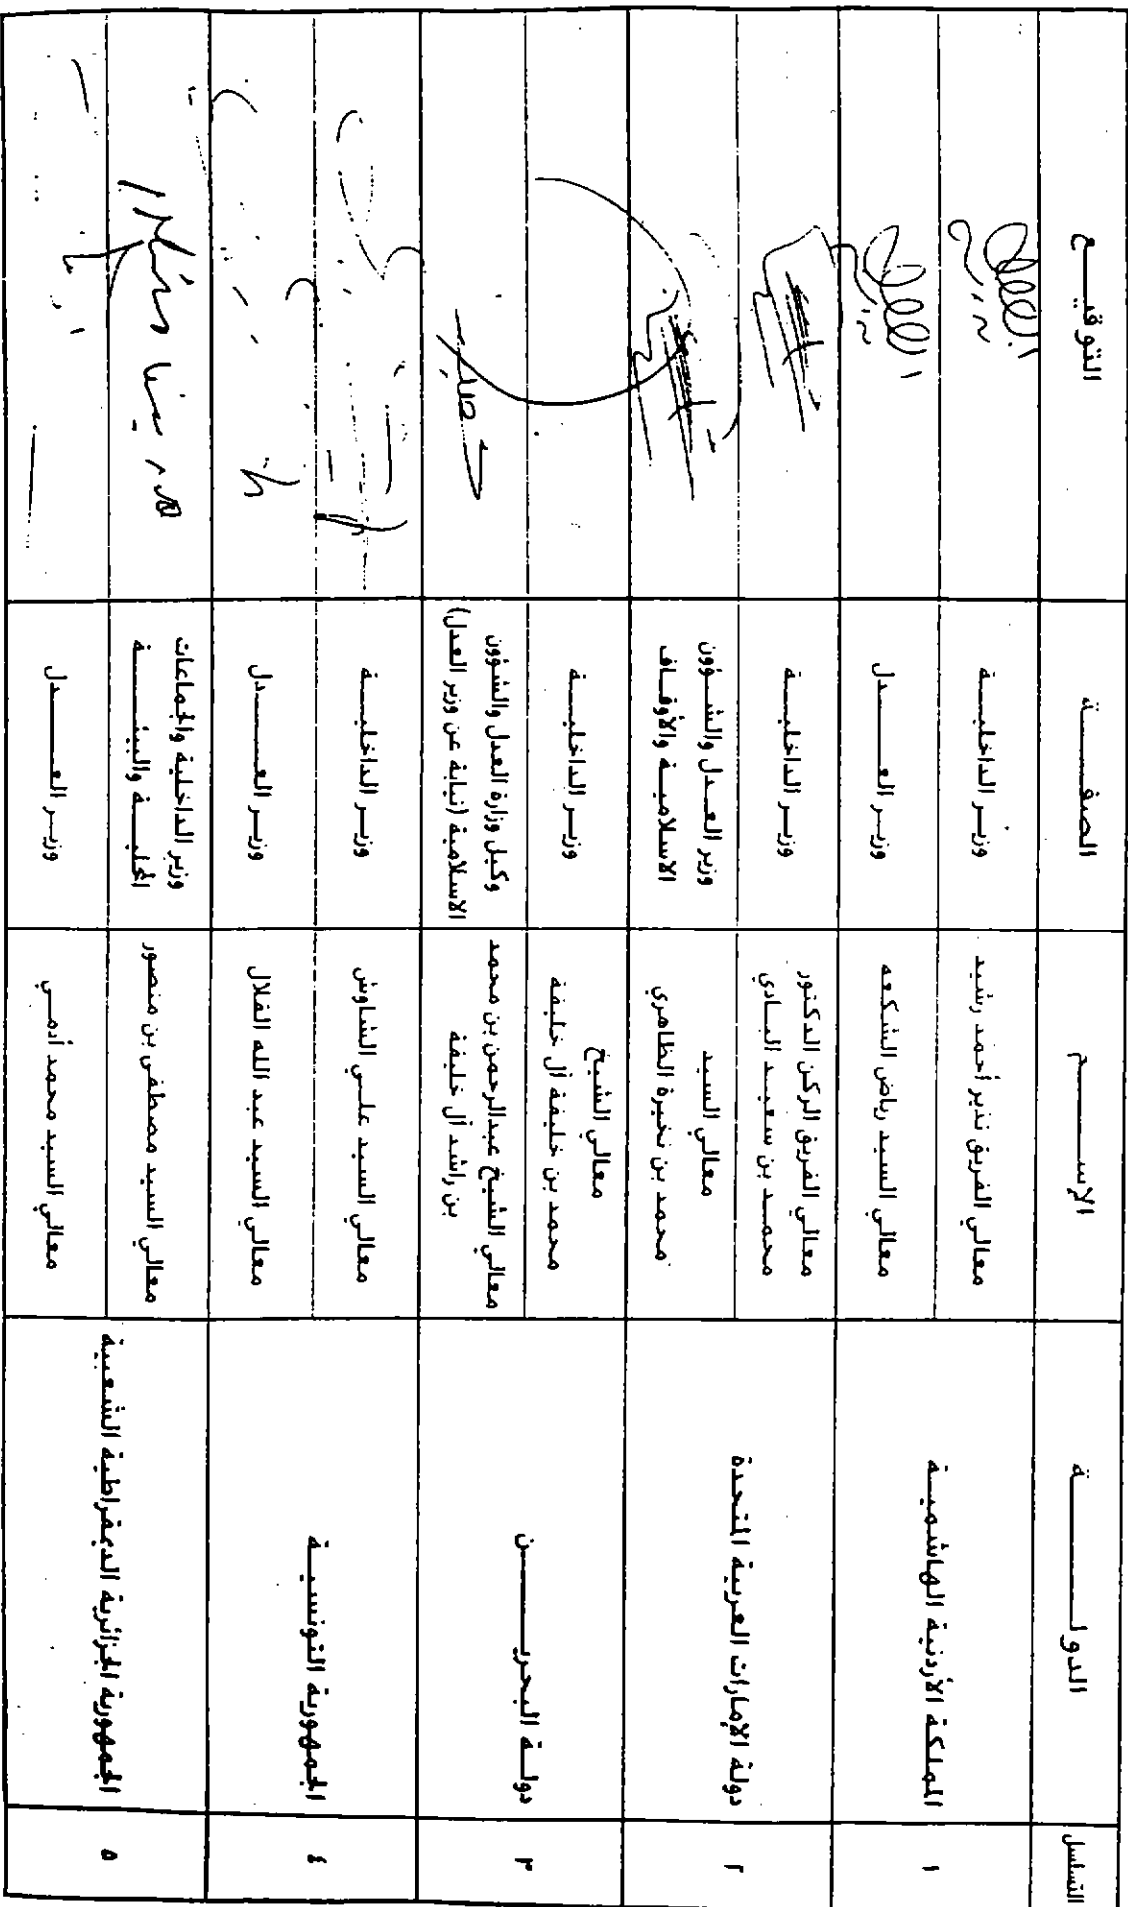 التسلسل الدولــــــة الإســــــم الصفــــــة التوقيــــع
١ المملكة الأردنية الهاشميــة
معالي الفريق نذير أحمد رشيد وزيــر الداخليـــة
معالي السيد رياض الشكعه وزيــر العـــــدل
٢ دولة الإمارات العربية المتحدة
معالي الفريق الركن الدكتور
محمــد بن سعيــد البــادي وزيــر الداخليـــة
معالي السيد
محمد بن نخيرة الظاهري
وزير العــدل والشــؤون
الاسلاميــة والأوقــاف
٣ دولــة البحريــــــن
معالي الشيخ
محمد بن خليفة آل خليفة وزيــر الداخليـــة
معالي الشيخ عبدالرحمن بن محمد
بن راشد آل خليفة
وكيل وزارة العدل والشؤون
الاسلامية (نيابة عن وزير العدل)
٤ الجمهورية التونسيـــة
معالي السيد علــي الشاوش وزيــر الداخليـــة
معالي السيد عبد الله القلال وزيــر العـــــدل
٥ الجمهورية الجزائرية الديمقراطية الشعبية
معالي السيد مصطفى بن منصور
وزير الداخلية والجماعات
المحليـــة والبيئـــــة
معالي السيد محمد أدمــي وزيــر العـــــدل